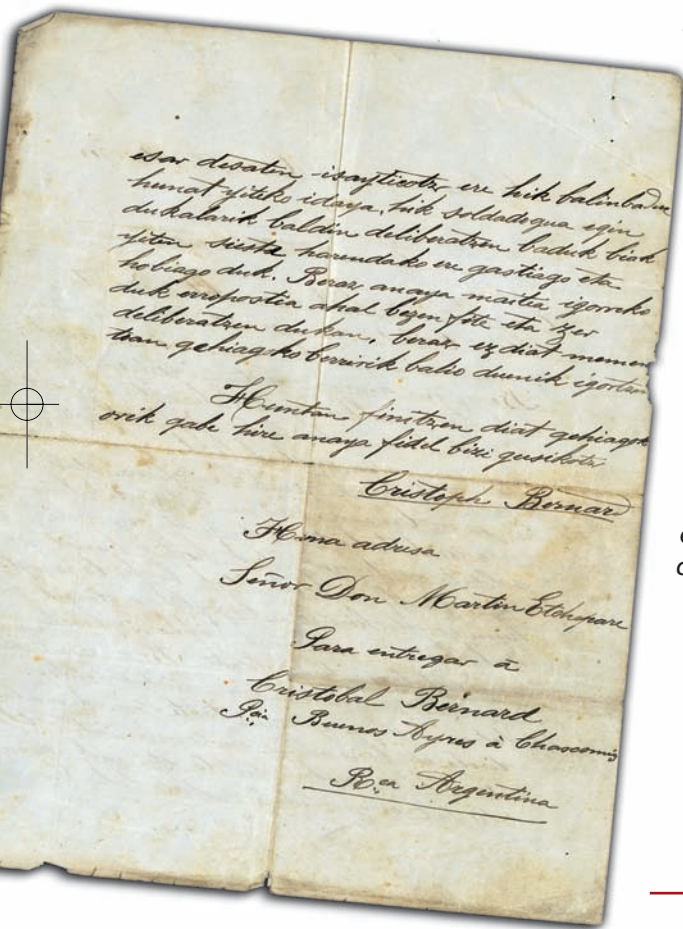 esar desaten isayticotz ere hik balinbaduc
hunat yiteko idaya, hik soldadogua egin
dukalarik baldin deliberatzen baduk biak
yiten siesta harendako ere gastiago eta
hobiago duk. Beraz anaya maitia igorreko
duk errepostia ahal bezen fite eta zer
deliberatzen dukan, beraz ez diat memen
tian gehiagoko berririk balio duenik igortzen
Huntan finitzen diat gehiagok
orik gabe hire anaya fidel bizi guzikotz
Cristoph Bernard
Huna adresa
Señor Don Martin Etchepare
Para entregar à
Cristobal Bernard
Buenos Ayres à Chascomus
R.ca Argentina